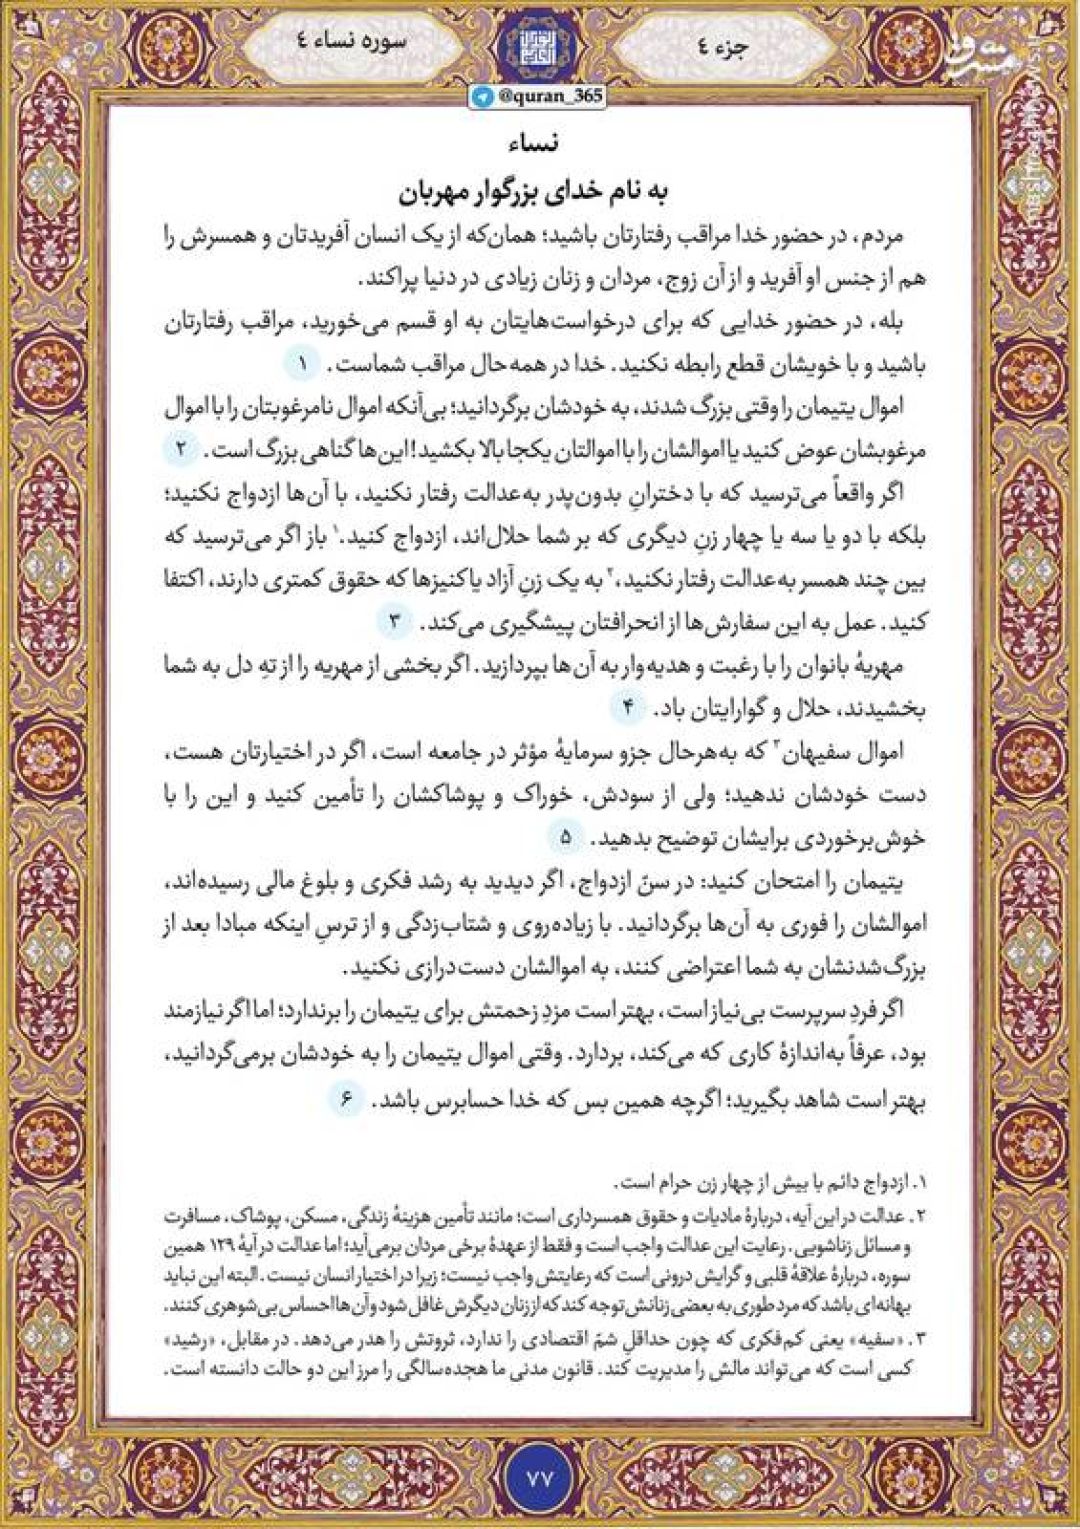 جزء ۴
سوره نساء ۴
مشرق
@quran_365
نساء
به نام خدای بزرگوار مهربان
مردم، در حضور خدا مراقب رفتارتان باشید؛ همان‌که از یک انسان آفریدتان و همسرش را
هم از جنس او آفرید و از آن زوج، مردان و زنان زیادی در دنیا پراکند.
بله، در حضور خدایی که برای درخواست‌هایتان به او قسم می‌خورید، مراقب رفتارتان
باشید و با خویشان قطع رابطه نکنید. خدا در همه حال مراقب شماست. ۱
اموال یتیمان را وقتی بزرگ شدند، به خودشان برگردانید؛ بی‌آنکه اموال نامرغوبتان را با اموال
مرغوبشان عوض کنید یا اموالشان را با اموالتان یکجا بالا بکشید! این‌ها گناهی بزرگ است. ۲
اگر واقعاً می‌ترسید که با دخترانِ بدون‌پدر به‌عدالت رفتار نکنید، با آن‌ها ازدواج نکنید؛
بلکه با دو یا سه یا چهار زنِ دیگری که بر شما حلال‌اند، ازدواج کنید.۱ باز اگر می‌ترسید که
بین چند همسر به‌عدالت رفتار نکنید،۲ به یک زنِ آزاد یا کنیزها که حقوق کمتری دارند، اکتفا
کنید. عمل به این سفارش‌ها از انحرافتان پیشگیری می‌کند. ۳
مهریهٔ بانوان را با رغبت و هدیه‌وار به آن‌ها بپردازید. اگر بخشی از مهریه را از تهِ دل به شما
بخشیدند، حلال و گوارایتان باد. ۴
اموال سفیهان۳ که به‌هرحال جزو سرمایهٔ مؤثر در جامعه است، اگر در اختیارتان هست،
دست خودشان ندهید؛ ولی از سودش، خوراک و پوشاکشان را تأمین کنید و این را با
خوش‌برخوردی برایشان توضیح بدهید. ۵
یتیمان را امتحان کنید: در سنّ ازدواج، اگر دیدید به رشد فکری و بلوغ مالی رسیده‌اند،
اموالشان را فوری به آن‌ها برگردانید. با زیاده‌روی و شتاب‌زدگی و از ترسِ اینکه مبادا بعد از
بزرگ‌شدنشان به شما اعتراضی کنند، به اموالشان دست‌درازی نکنید.
اگر فردِ سرپرست بی‌نیاز است، بهتر است مزدِ زحمتش برای یتیمان را برندارد؛ اما اگر نیازمند
بود، عرفاً به‌اندازهٔ کاری که می‌کند، بردارد. وقتی اموال یتیمان را به خودشان برمی‌گردانید،
بهتر است شاهد بگیرید؛ اگرچه همین بس که خدا حسابرس باشد. ۶
۱. ازدواج دائم با بیش از چهار زن حرام است.
۲. عدالت در این آیه، دربارهٔ مادیات و حقوق همسرداری است؛ مانند تأمین هزینهٔ زندگی، مسکن، پوشاک، مسافرت
و مسائل زناشویی. رعایت این عدالت واجب است و فقط از عهدهٔ برخی مردان برمی‌آید؛ اما عدالت در آیهٔ ۱۲۹ همین
سوره، دربارهٔ علاقهٔ قلبی و گرایش درونی است که رعایتش واجب نیست؛ زیرا در اختیار انسان نیست. البته این نباید
بهانه‌ای باشد که مرد طوری به بعضی زنانش توجه کند که از زنان دیگرش غافل شود و آن‌ها احساس بی‌شوهری کنند.
۳. «سفیه» یعنی کم‌فکری که چون حداقلِ شمّ اقتصادی را ندارد، ثروتش را هدر می‌دهد. در مقابل، «رشید»
کسی است که می‌تواند مالش را مدیریت کند. قانون مدنی ما هجده‌سالگی را مرز این دو حالت دانسته است.
۷۷